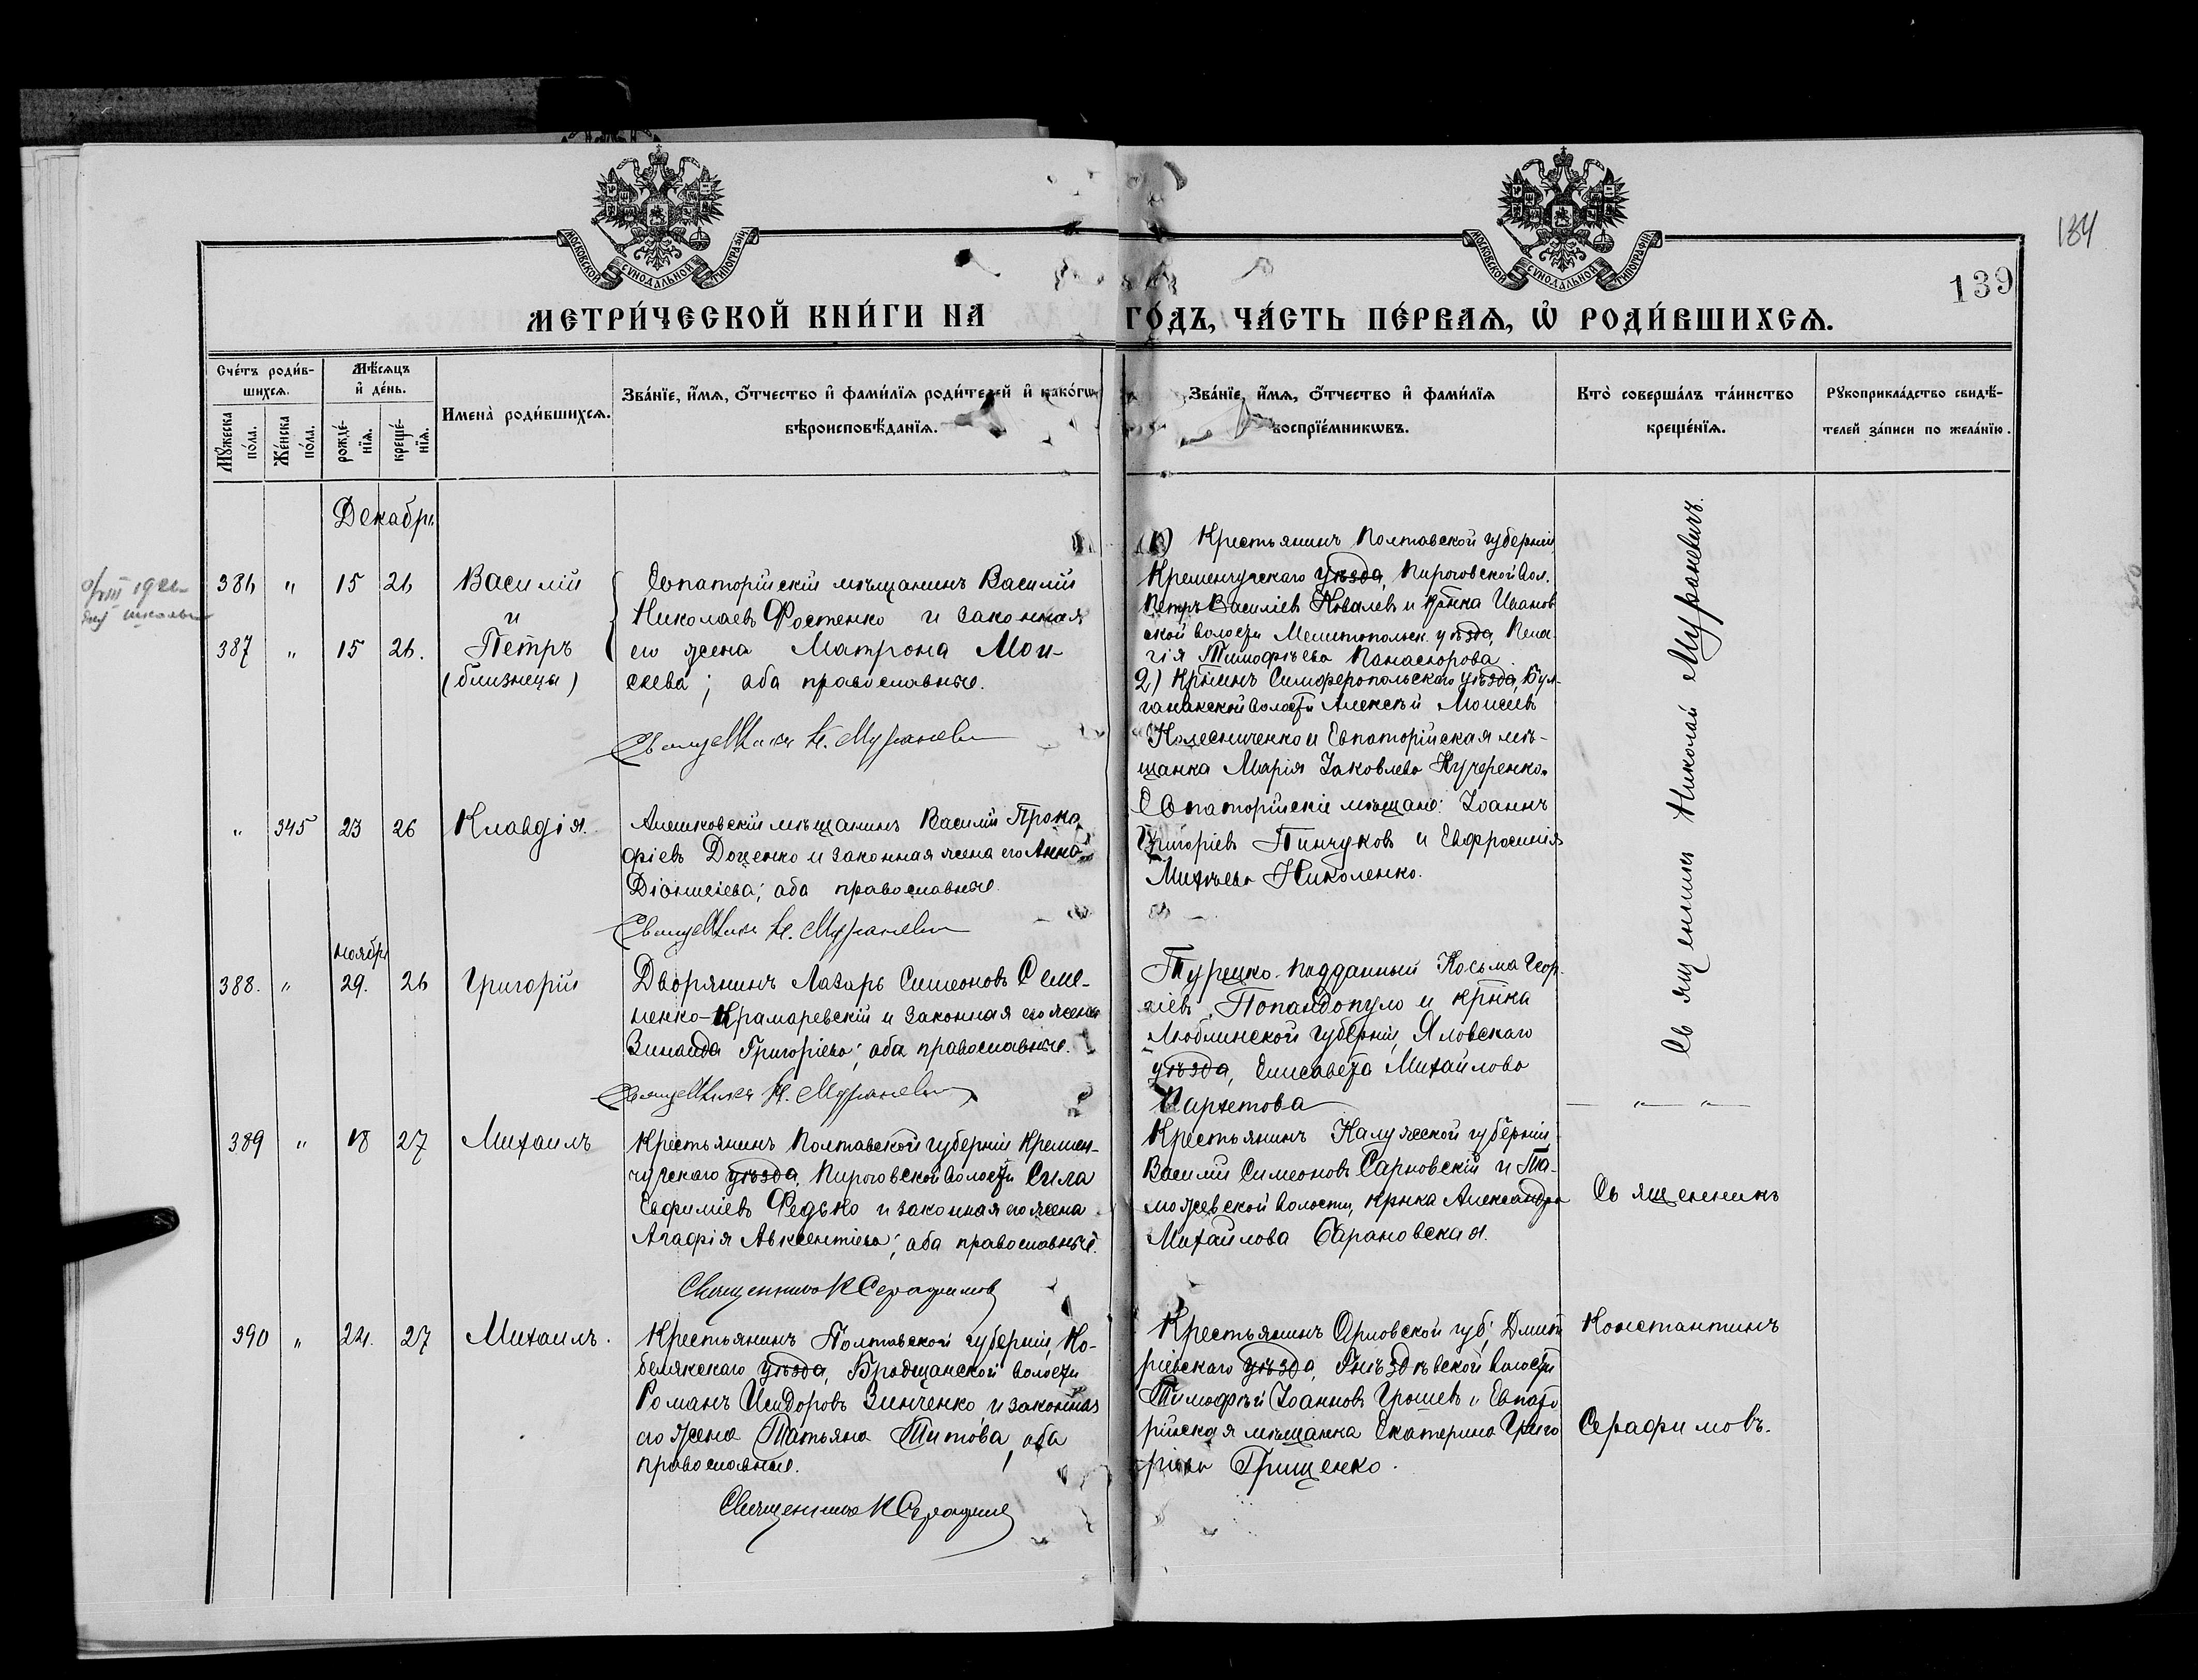 134
139
МОСКОВСКОЙ СУНОДАЛЬНОЙ ТИПОГРАФІИ
МОСКОВСКОЙ СУНОДАЛЬНОЙ ТИПОГРАФІИ
МЕТРИ́ЧЕСКОЙ КНИ́ГИ НА ГО́ДЪ, ЧА́СТЬ ПЕ́РВАѦ, Ѡ҆ РОДИ́ВШИХСѦ.
Сче́тъ роди́в-
шихсѧ.
Мꙋжеска по́ла.
Же́нска по́ла.
Мѣ́сѧцъ
и҆ де́нь.
рожде́-
нїѧ.
креще́-
нїѧ.
Имена̀ роди́вшихсѧ.
Зва́нїе, и҆́мѧ, ѻ҆́тчество и҆ фами́лїѧ роди́телей и҆ како́гѡ
вѣроисповѣ́данїѧ.
Зва́нїе, и҆́мѧ, ѻ҆́тчество и҆ фами́лїѧ
воспрїе́мникѡвъ.
Кто̀ соверша́лъ та́инство
креще́нїѧ.
Рꙋкоприкла́дство свидѣ́-
телей за́писи по жела́нїю.
Декабрь
386 " 15 26 Василій
и
387 " 15 26. Петръ
(близнецы)
Евпаторійскій мѣщанинъ Василій
Николаевъ Фостенко и законная
его жена Матрона Мои-
сеева; оба православные.
Священникъ Н. Мураневич
1) Крестьянинъ Полтавской губерніи,
Кременчугскаго уѣзда, Пироговской вол.
Петръ Василіевъ Ковалевъ и кр҃нка Иванов
ской волости Мелитопольск. уѣзда, Пела-
гія Тимофѣева Панаскорова.
2) Кр҃нинъ Симферопольскаго уѣзда, Бул-
ганакской волости Алексѣй Моисеевъ
Колесниченко и Евпаторійская мѣ-
щанка Марія Іаковлева Кучеренко.
" 345 23 26 Клавдія.
Алешковскій мѣщанинъ Василій Проко
фіевъ Доценко и законная жена его Анна
Діонисіева; оба православные.
Священникъ Н. Мураневич
Евпаторійскіе мѣщане: Іоаннъ
Григоріевъ Пинчуковъ и Евфросинія
Михѣева Николенко.
Священникъ Николай Мураневичъ.
Ноябрь
388. " 29. 26 Григорій
Дворянинъ Лазарь Симеоновъ Семе-
ненко-Крамаревскій и законная его жена
Зинаида Григоріева; оба православные.
Священникъ Н. Мураневич
Турецко-подданный Косьма Геор-
гіевъ Попандопуло и кр҃нка
Люблинской губерніи, Яловскаго
уѣзда, Елисавета Михайлова
Пархетова
— " — " —
389 " 18 27 Михаилъ
Крестьянинъ Полтавской губерніи Кремен-
чугскаго уѣзда, Пироговской волости Сила
Евфиміевъ Федько и законная его жена
Агафія Авксентіева; оба православные.
Священникъ К Серафимов
Крестьянинъ Калужской губерніи,
Василій Симеоновъ Сарновскій и Та-
можевской волости, кр҃нка Александра
Михайлова Барановская.
Священникъ
390 " 24. 27 Михаилъ.
Крестьянинъ Полтавской губерніи, Ко-
белякскаго уѣзда, Бродщанской волости
Романъ Исидоровъ Зинченко и законная
его жена Татьяна Титова, оба
православные.
Священникъ К Серафимов
Крестьянинъ Орловской губ., Дмит
ріевскаго уѣзда, Гнѣздѣвской волости
Тимофѣй Іоанновъ Грошевъ и Евпато
рійская мѣщанка Екатерина Григо
ріева Грищенко.
Константинъ
Серафимовъ.